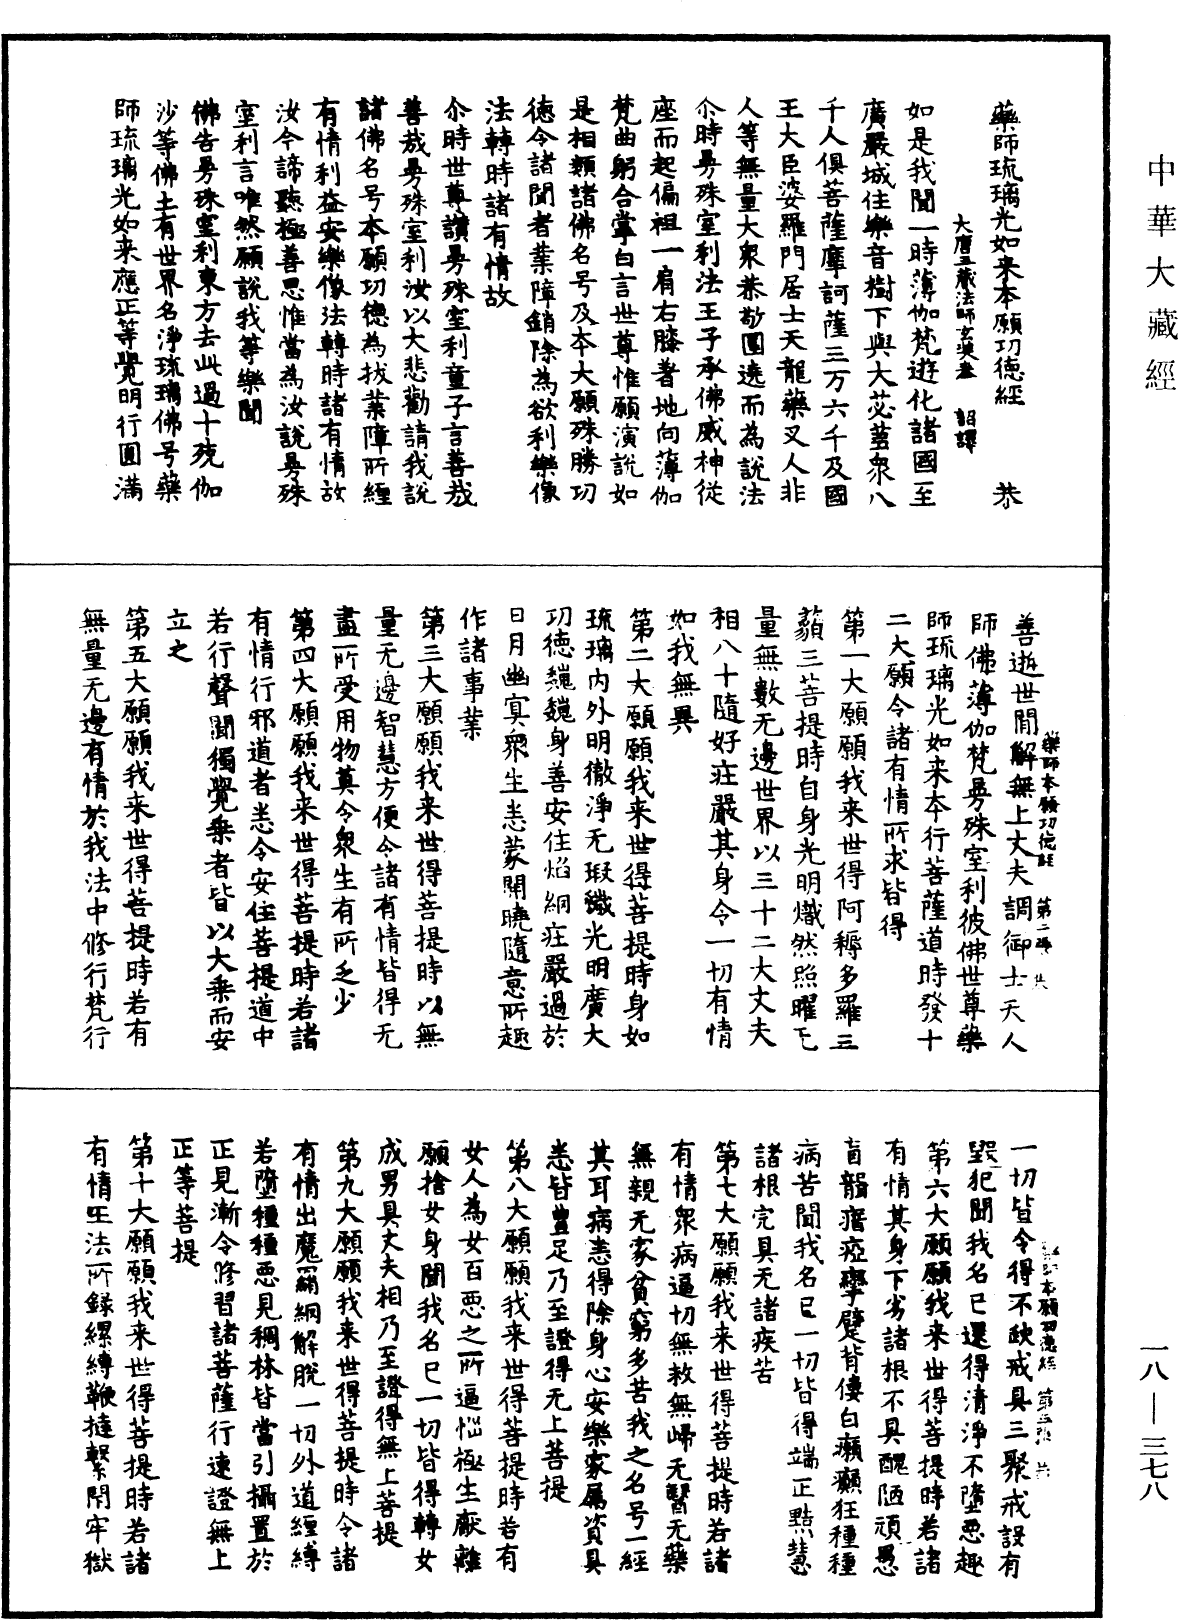 中華大藏經
藥師琉璃光如来本願功德經　恭
大唐三藏法師玄奘奉　詔譯
如是我聞一時薄伽梵遊化諸國至
廣嚴城住樂音樹下與大苾蒭衆八
千人俱菩薩摩訶薩三万六千及國
王大臣婆羅門居士天龍藥叉人非
人等無量大衆恭敬圍遶而為說法
尒時曼殊室利法王子承佛威神從
座而起偏袒一肩右膝著地向薄伽
梵曲躬合掌白言世尊惟願演說如
是相類諸佛名号及本大願殊勝功
德令諸聞者業障銷除為欲利樂像
法轉時諸有情故
尒時世尊讚曼殊室利童子言善哉
善哉曼殊室利汝以大悲勸請我說
諸佛名号本願功德為拔業障所纏
有情利益安樂像法轉時諸有情故
汝今諦聽極善思惟當為汝說曼殊
室利言唯然願說我等樂聞
佛告曼殊室利東方去此過十殑伽
沙等佛土有世界名淨琉璃佛号藥
師琉璃光如来應正等覺明行圓滿
藥師本願功德經　第二張　恭
善逝世間解無上丈夫調御士天人
師佛薄伽梵曼殊室利彼佛世尊藥
師琉璃光如来本行菩薩道時發十
二大願令諸有情所求皆得
第一大願願我来世得阿耨多羅三
藐三菩提時自身光明熾然照曜无
量無數无邊世界以三十二大丈夫
相八十隨好莊嚴其身令一切有情
如我無異
第二大願願我来世得菩提時身如
琉璃內外明徹淨无瑕穢光明廣大
功德巍巍身善安住焰網莊嚴過於
日月幽冥衆生悉蒙開曉隨意所趣
作諸事業
第三大願願我来世得菩提時以無
量无邊智慧方便令諸有情皆得无
盡所受用物莫令衆生有所乏少
第四大願願我来世得菩提時若諸
有情行邪道者悉令安住菩提道中
若行聲聞獨覺乘者皆以大乘而安
立之
第五大願願我来世得菩提時若有
無量无邊有情於我法中修行梵行
本願功德經　第三張　恭
一切皆令得不缺戒具三聚戒設有
毀犯聞我名已還得清淨不墮惡趣
第六大願願我来世得菩提時若諸
有情其身下劣諸根不具醜陋頑愚
盲聾瘖瘂攣躄背僂白癩癲狂種種
病苦聞我名已一切皆得端正黠慧
諸根完具无諸疾苦
第七大願願我来世得菩提時若諸
有情衆病逼切無救無歸无醫无藥
無親无家貧窮多苦我之名号一經
其耳病悉得除身心安樂家屬資具
悉皆豐足乃至證得无上菩提
第八大願願我来世得菩提時若有
女人為女百惡之所逼惱極生厭離
願捨女身聞我名已一切皆得轉女
成男具丈夫相乃至證得無上菩提
第九大願願我来世得菩提時令諸
有情出魔羂網解脫一切外道纏縛
若墮種種惡見稠林皆當引攝置於
正見漸令修習諸菩薩行速證無上
正等菩提
第十大願願我来世得菩提時若諸
有情王法所錄縲縛鞭撻繫閉牢獄
一八—三七八